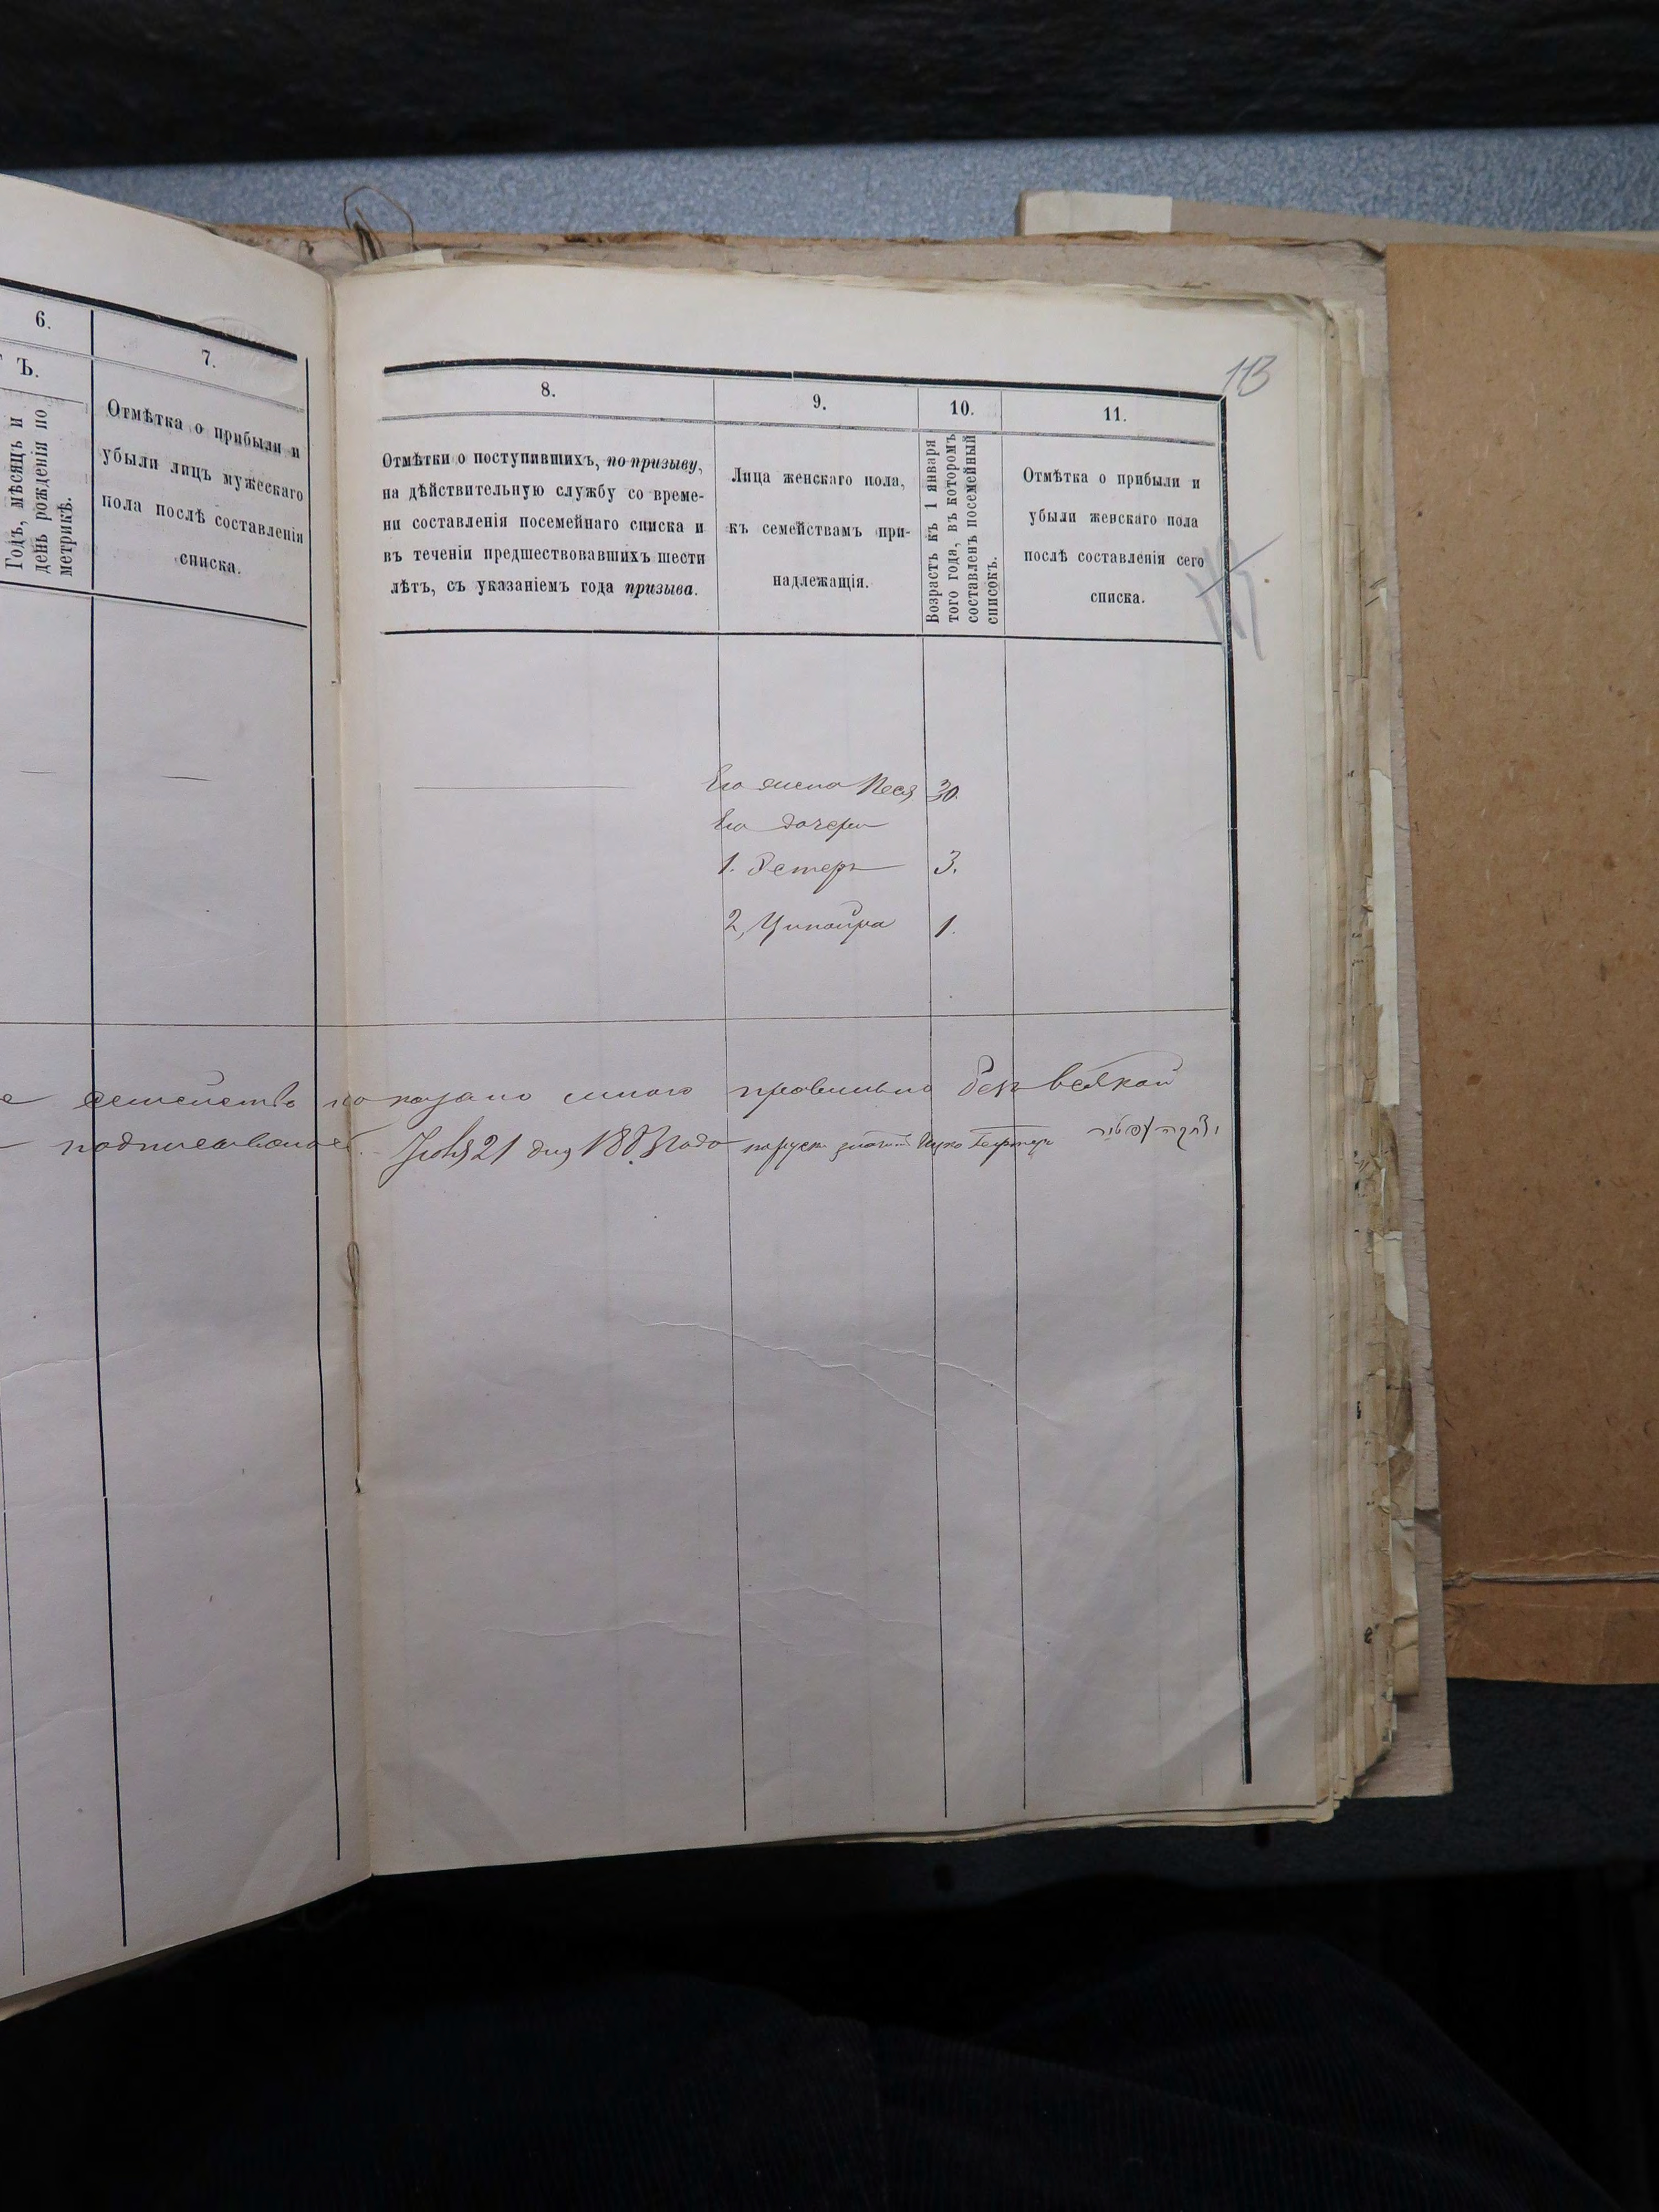 6.
7.
Ъ.
Годъ, мѣсяцъ и
день рожденія по
метрикѣ.
Отмѣтка о прибыли и
убыли лицъ мужескаго
пола послѣ составленія
списка.
113
8.
9.
10.
11.
Отмѣтки о поступившихъ, по призыву,
на дѣйствительную службу со време-
ни составленія посемейнаго списка и
въ теченіи предшествовавшихъ шести
лѣтъ, съ указаніемъ года призыва.
Лица женскаго пола,
къ семействамъ при-
надлежащія.
Возрастъ къ 1 января
того года, въ которомъ
составленъ посемейный
списокъ.
Отмѣтка о прибыли и
убыли женскаго пола
послѣ составленія сего
списка.
Его жена Песя 30.
Его дочери
1. Эстеръ 3.
2, Ципойра 1.
е семейство показано мною правильно безъ всякой
Іюля 21 дня 188 года